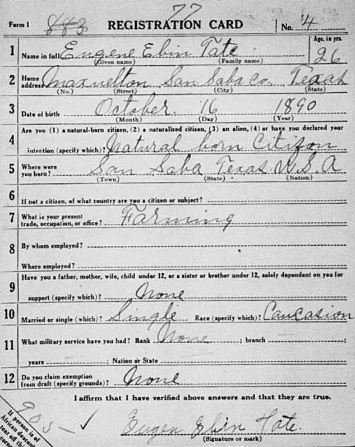 77
Form 1 883 REGISTRATION CARD No. 4
1 Name in full Eugene Ebin Tate Age, in yrs. 26
(Given name) (Family name)
2 Home address Maxwelton San Saba Co. Texas
(No.) (Street) (City) (State)
3 Date of birth October 16 1890
(Month) (Day) (Year)
4 Are you (1) a natural-born citizen, (2) a naturalized citizen, (3) an alien, (4) or have you declared your
intention (specify which)? Natural born Citizon
5 Where were you born? San Saba Texas U.S.A
(Town) (State) (Nation)
6 If not a citizen, of what country are you a citizen or subject?
7 What is your present trade, occupation, or office? Farming
8 By whom employed?
Where employed?
9 Have you a father, mother, wife, child under 12, or a sister or brother under 12, solely dependent on you for
support (specify which)? None
10 Married or single (which)? Single Race (specify which)? Caucasion
11 What military service have you had? Rank None ; branch ;
years ; Nation or State
12 Do you claim exemption from draft (specify grounds)? None
I affirm that I have verified above answers and that they are true.
Eugen Ebin Tate.
(Signature or mark)
If person is of
African descent